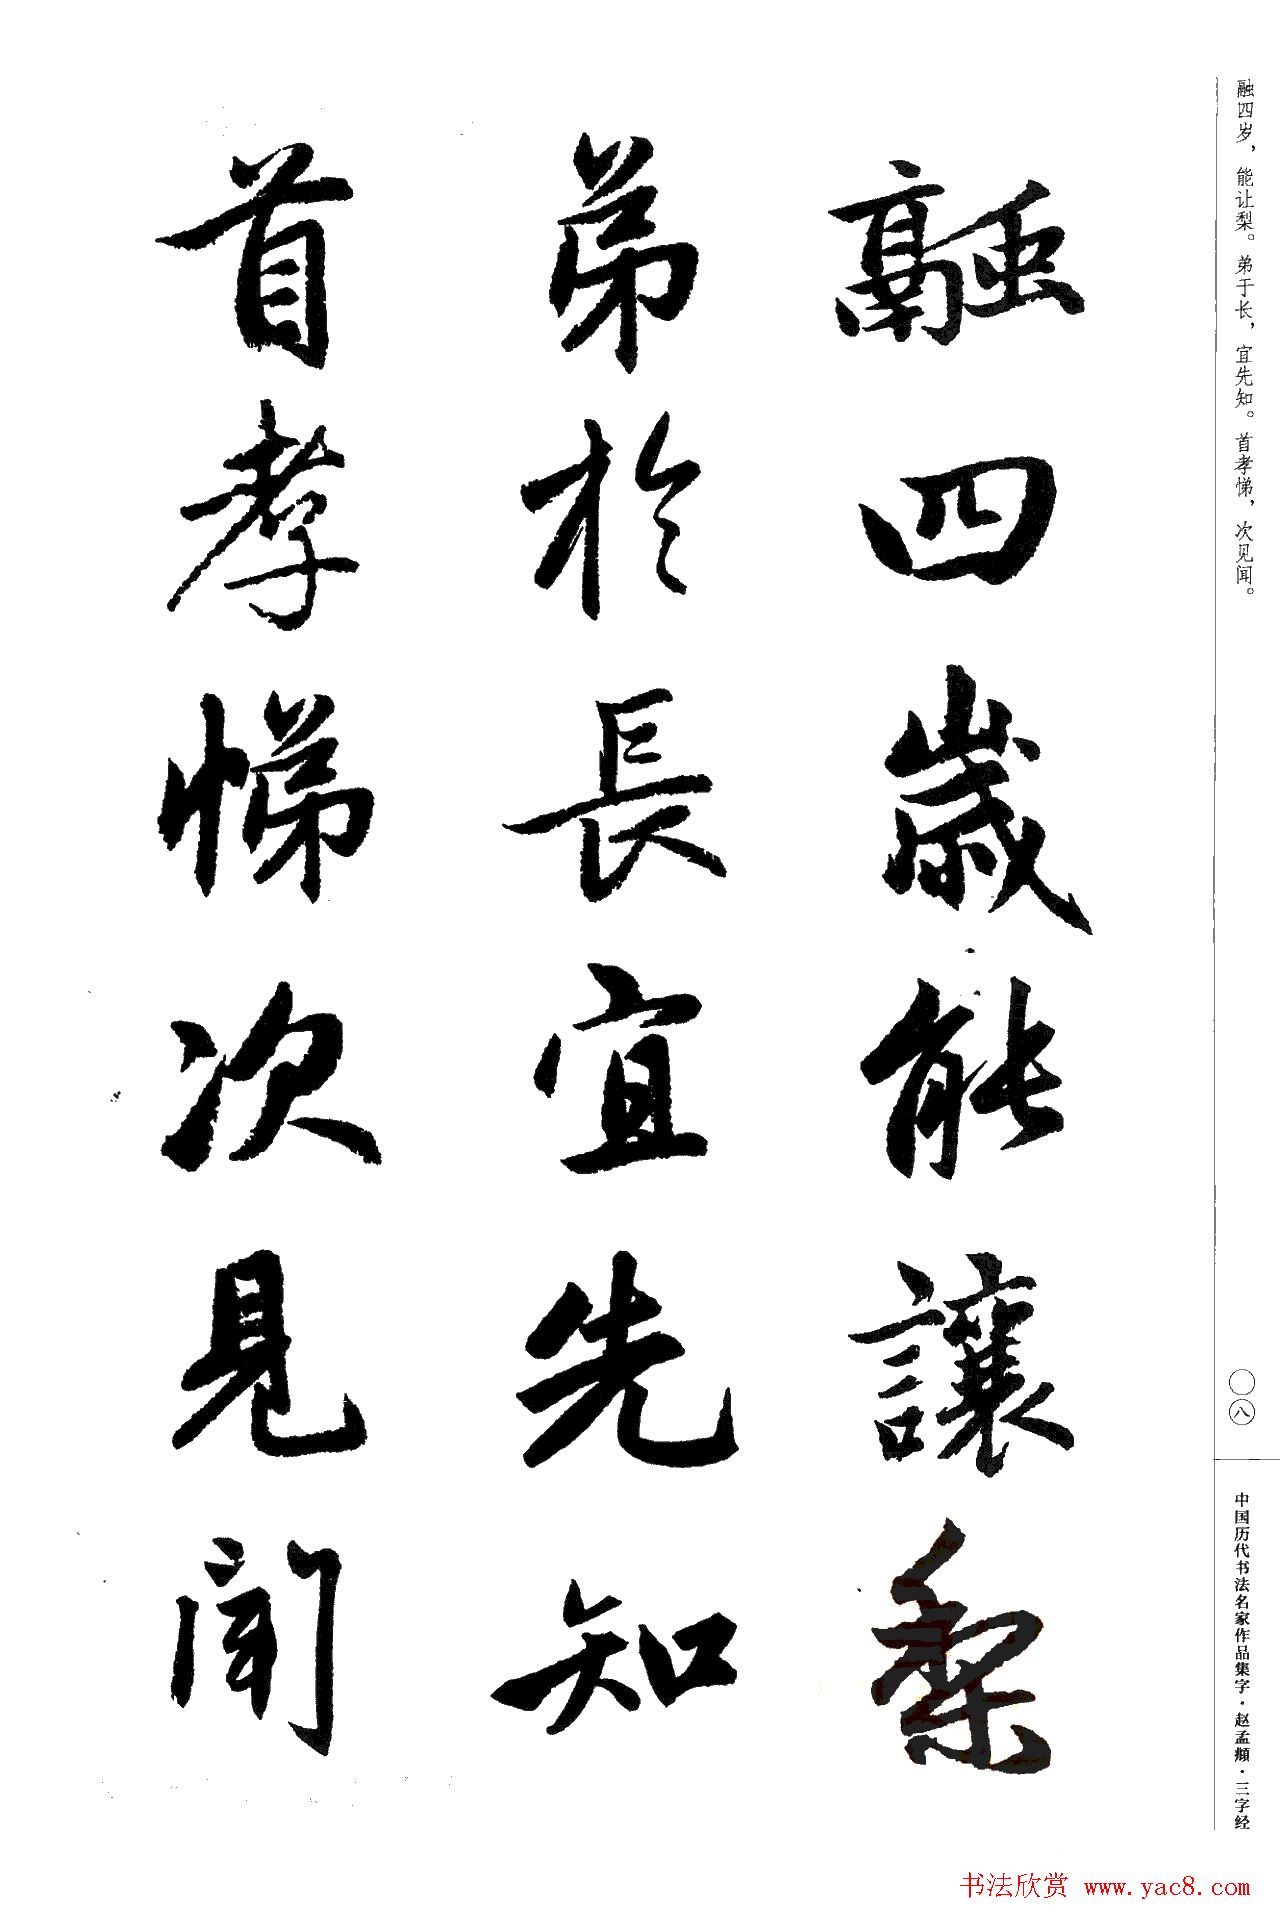 融四岁，能让梨。弟于长，宜先知。首孝悌，次见闻。
融四歲能讓梨
弟於長宜先知
首孝悌次見聞
〇八
中国历代书法名家作品集字·赵孟頫·三字经
书法欣赏 www.yac8.com